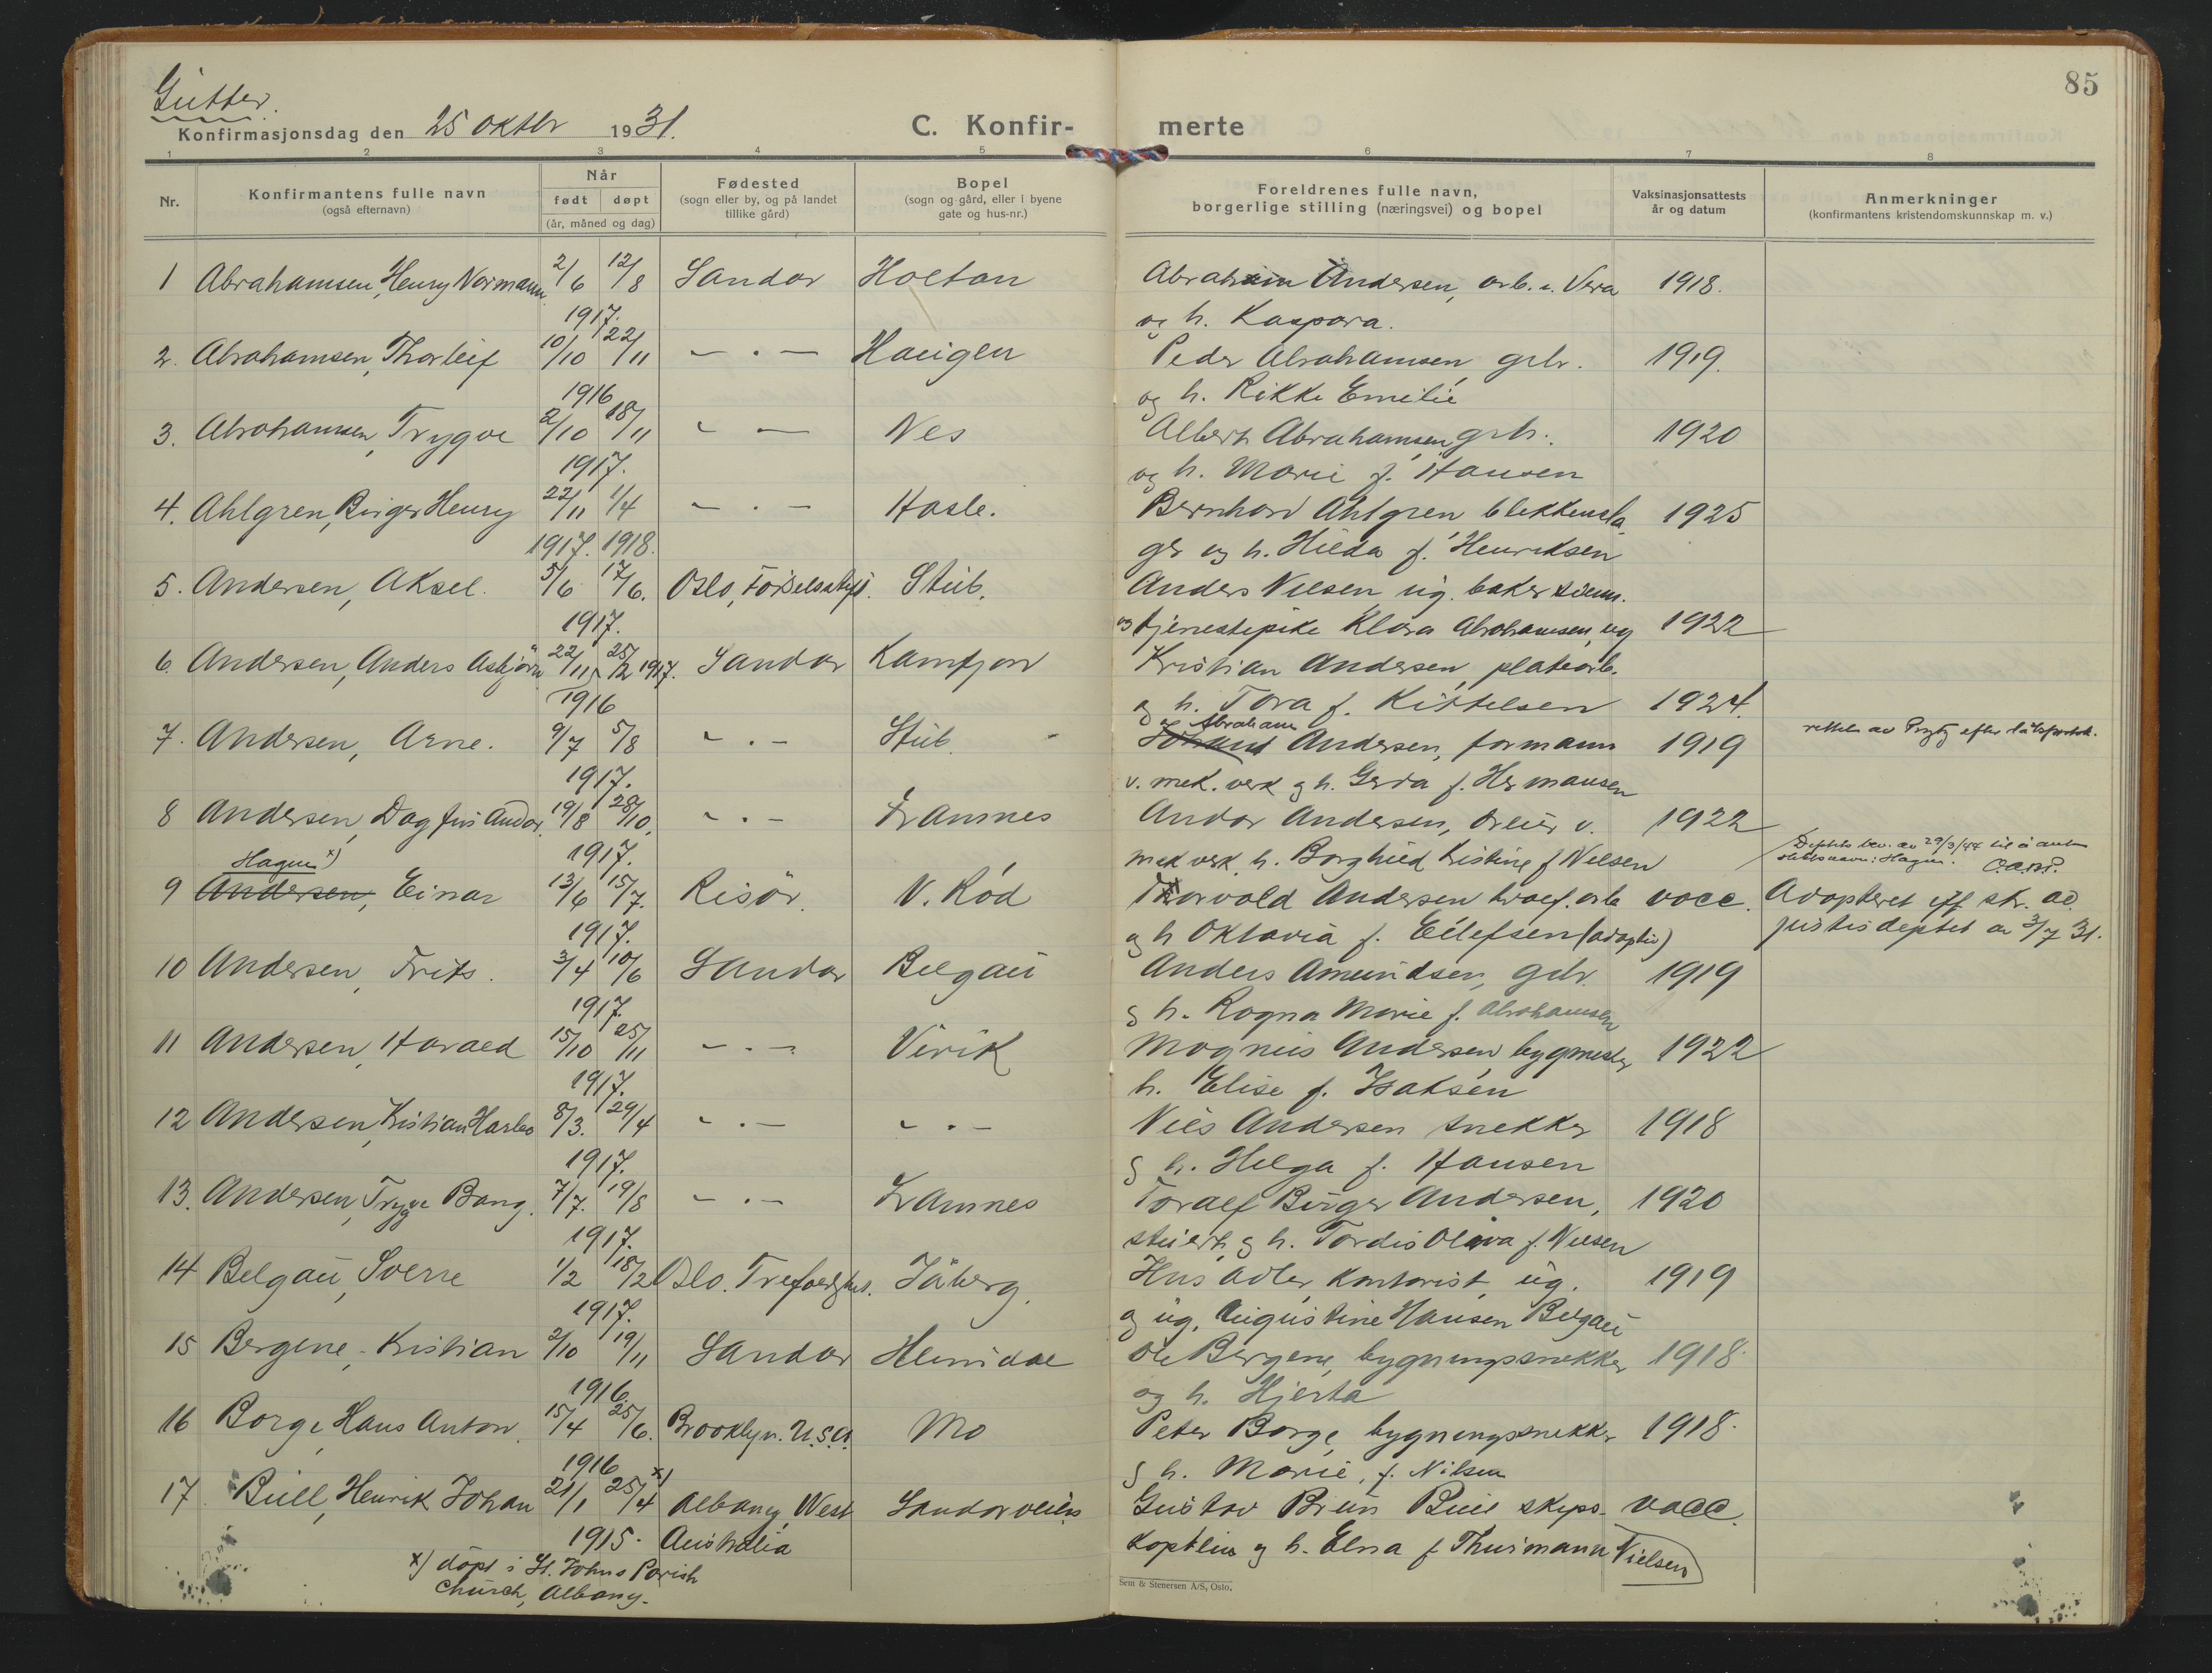 85
Gutter.
Konfirmasjonsdag den 25 oktbr 1931.
C. Konfir- merte
1 2 3 4 5 6 7 8
Nr.
Konfirmantens fulle navn
(også efternavn)
Når
født døpt
(år, måned og dag)
Fødested
(sogn eller by, og på landet
tillike gård)
Bopel
(sogn og gård, eller i byene
gate og hus-nr.)
Foreldrenes fulle navn,
borgerlige stilling (næringsvei) og bopel
Vaksinasjonsattests
år og datum
Anmerkninger
(konfirmantens kristendomskunnskap m. v.)
1 Abrahamsen, Henry Normann 2/6 12/8 Sandar Holtan Abraham Andersen, arb. v. Vera 1918.
1917. og h. Kaspara.
2. Abrahamsen, Thorleif 10/10 22/11 - . - Haugen Peder Abrahamsen, grbr. 1919.
1916 og h. Rikke Emilie
3. Abrahamsen, Trygve 2/10 18/11 - - Nes Albert Abrahamsen, grbr. 1920
1917. og h. Marie f. Hansen
4. Ahlgren, Birger Henry 22/11 1/4 - . - Hasle. Bernhard Ahlgren blikkensla 1925
1917. 1918. ger og h. Hilda f. Henriksen
5. Andersen, Aksel. 5/6 17/6. Oslo, Födselsstift. Stub. Anders Nilsen ug. baker svenn.
1917. og tjenestepike Klara Abrahamsen, ug 1922
6. Andersen, Anders Asbjörn 22/11 25/2 1917. Sandar Kamfjor Kristian Andersen, platearb.
1916 og h. Tora f. Kittelsen 1924.
7. Andersen, Arne. 9/7 5/8 - . - Stub. Abraham Andersen, formann 1919 rettelse av efter dåbsattest.
1917. v. mek. verk og h. Gerda f. Hermansen
8 Andersen, Dagfin Andor. 19/8 28/10. - . - Framnes Andor Andersen, dreier v. 1922
1917. mek verk, h. Borghild Kristine f Nilsen
Deptets bev. av 29/3/44 til å anta
slektsnavn: Hagen.
Hagen x)
9 Andersen, Einar 13/6 15/7. Risör. N. Röd Thorvald Andersen hvalf. arb vacc. Adopteret iflg skr. ad.
1917. og h Oktavia f. Eilefsen (adoptiv) justisdeptet av 3/7 31.
10 Andersen, Frits. 3/4 10/6 Sandar Belgau Anders Amundsen, grbr. 1919
1917. og h. Ragna Marie f. Abrahamsen
11 Andersen, Harald 15/10 25/11 - . - Virik Magnus Andersen, bygmester 1922
1917. h. Elise f. Isaksen
12 Andersen, Kristian Harbo 8/3. 29/4 - . - - . - Nils Andersen snekker 1918
1917. og h. Helga f. Hansen
13. Andersen, Trygve Bang. 7/7. 19/8 - . - Framnes Toralf Birger Andersen, 1920
1917. stuert, og h. Tordis Oliva f. Nilsen
14 Belgau, Sverre 1/2 18/2 Oslo. Trefoldighet. Jåberg. Hus Adler, kontorist, ug. 1919
1917. og ug. Augustine Hansen Belgau
15 Bergene, Kristian 2/10 19/11 Sandar Hemidal Ole Bergene, bygningssnekker 1918.
1916. og h. Hjerta
16 Borge, Hans Anton. 15/4 25/6. Brooklyn. U.S.A. Mo Peter Borge, bygningssnekker 1918.
1916 og h. Marie, f. Nilsen
17. Bull, Henrik Johan 21/1 25/4 x) Albany, West Sandarveien Gustav Brun Bull skips- vacc.
1915. Australia kaptein og h. Elna f Thurmann Nielsen
x) döpt i St. Johns Parish
Church, Albany.
Sem & Stenersen A/S, Oslo.